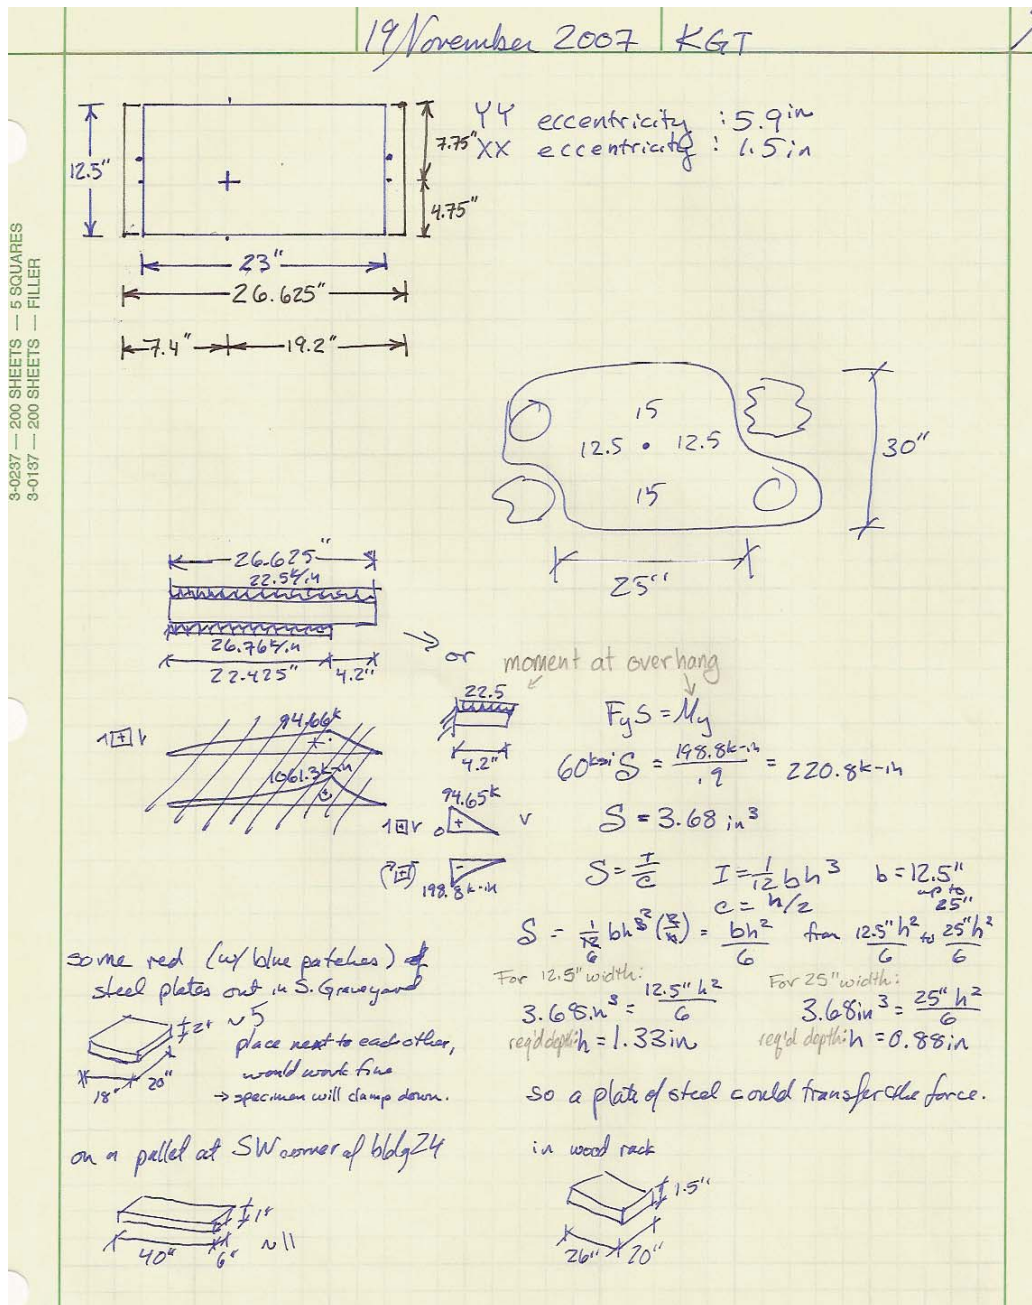 19 November 2007 KGT
3-0237 — 200 SHEETS — 5 SQUARES
3-0137 — 200 SHEETS — FILLER
YY eccentricity : 5.9in
XX eccentricity : 1.5in
12.5"
7.75"
4.75"
23"
26.625"
7.4" 19.2"
15
12.5 • 12.5
15
30"
25"
26.625"
22.5k/in
26.76k/in
22.425" 4.2"
→ or
moment at overhang
94.66k
1061.3k-in
22.5
4.2"
94.65k
V
0
198.8k-in
FyS = My
60ksi S = 198.8k-in/.9 = 220.8k-in
S = 3.68 in³
S = I/c I = 1/12 bh³ b = 12.5"
c = h/2 up to 25"
S = 1/12 bh³(2/h) = bh²/6 from 12.5"h²/6 to 25"h²/6
For 12.5" width:
3.68in³ = 12.5" h²/6
req'd depth: h = 1.33in
For 25" width:
3.68in³ = 25" h²/6
req'd depth: h = 0.88in
so a plate of steel could transfer the force.
some red (w/ blue patches)
steel plates out in S. Graveyard
2" ~5
18" 20"
place next to each other,
would work fine
→ specimen will clamp down.
on a pallet at SW corner of bldg 24
1"
40" 6" ~11
in wood rack
1.5"
26" 20"